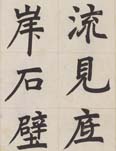 流見底
岸石壁